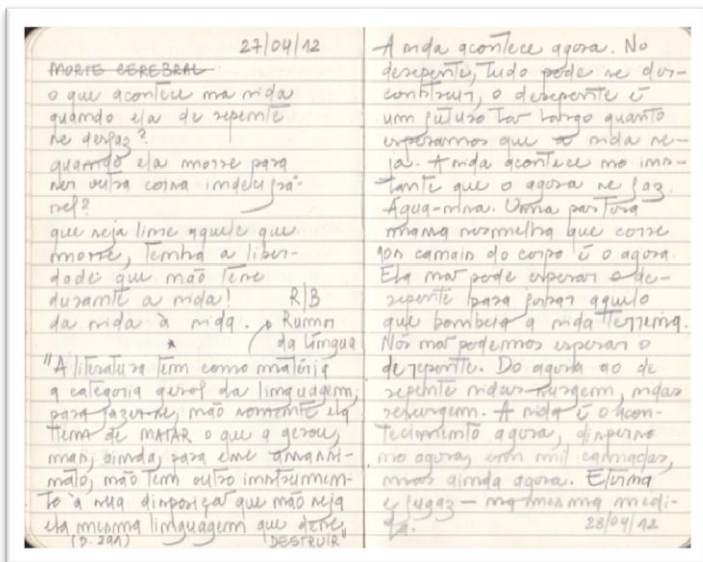 27/04/12
MORTE CEREBRAL
o que acontece na vida
quando ela de repente
se desfaz?
quando ela morre para
ser outra coisa indecifrá-
vel?
que seja livre aquele que
morre, tenha a liber-
dade que não teve
durante a vida! R|B
da vida à vida. Rumor
da Língua
"A literatura tem como matéria
a categoria geral da linguagem;
para fazer-se, não somente ela
tem de MATAR o que a gerou,
mas, ainda, para esse assassi-
nato, não tem outro instrumen-
to à sua disposição que não seja
ela mesma linguagem que deve
(p. 291) DESTRUIR"
A vida acontece agora. No
derepente, tudo pode se des-
construir, o derepente é
um futuro tão longo quanto
esperamos que a vida se-
ja. A vida acontece no ins-
tante que o agora se faz.
Água-viva. Uma pastosa
massa vermelha que corre
canais do corpo é o agora.
Ela não pode esperar o de-
repente para jorrar aquilo
que bombeia a vida terrena.
Nós não podemos esperar o
derepente. Do agora ao de
repente vidas surgem, vidas
ressurgem. A vida é o acon-
tecimento agora, disperso
no agora, em mil camadas,
mas ainda agora. Eterna
e fugaz — na mesma medi-
da. 28/04/12